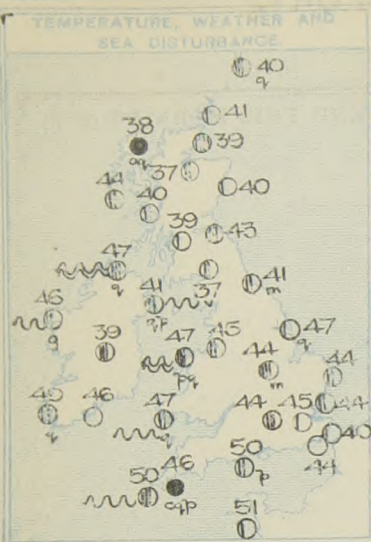 TEMPERATURE, WEATHER AND
SEA DISTURBANCE.
40
q
41
38
39
oq
37
44
40
40
39
43
47
q
41
37
41
m
46
q
39
47
pq
45
47
q
44
m
44
45
q
46
47
q
44
45
44
40
44
50
p
50
46
cqp
51